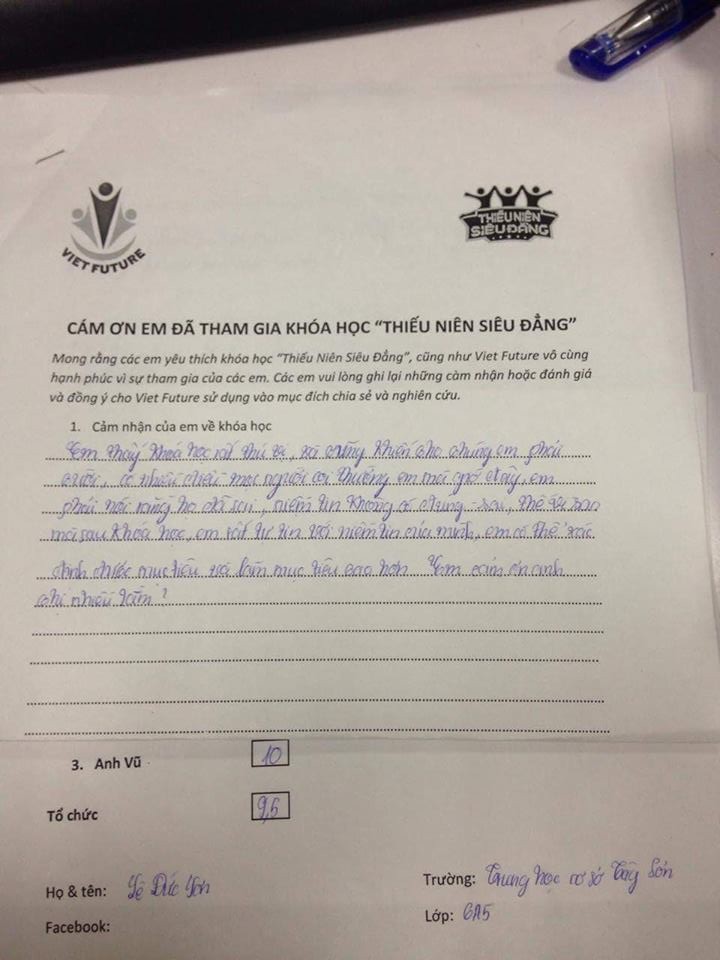 VIET FUTURE
THIẾU NIÊN
SIÊU ĐẲNG
CÁM ƠN EM ĐÃ THAM GIA KHÓA HỌC “THIẾU NIÊN SIÊU ĐẲNG”
Mong rằng các em yêu thích khóa học “Thiếu Niên Siêu Đẳng”, cũng như Viet Future vô cùng
hạnh phúc vì sự tham gia của các em. Các em vui lòng ghi lại những cảm nhận hoặc đánh giá
và đồng ý cho Viet Future sử dụng vào mục đích chia sẻ và nghiên cứu.
1. Cảm nhận của em về khóa học
Em thấy khoá học rất thú vị, và cũng khiến cho chúng em phải
cười, có nhiều điều mọc người coi thường em mới giờ đây, em
phải nói rằng họ đã sai, niềm tin không có đúng - sai, thế
mà sau khoá học, em rất tự tin với niềm tin của mình, em có thể xác
định được mục tiêu và làm mục tiêu cao hơn Em cảm ơn anh
chị nhiều lắm!
3. Anh Vũ 10
Tổ chức 9,5
Họ & tên: Lê Đức
Trường: Trung học cơ sở Tây Sơn
Facebook:
Lớp: 6A5